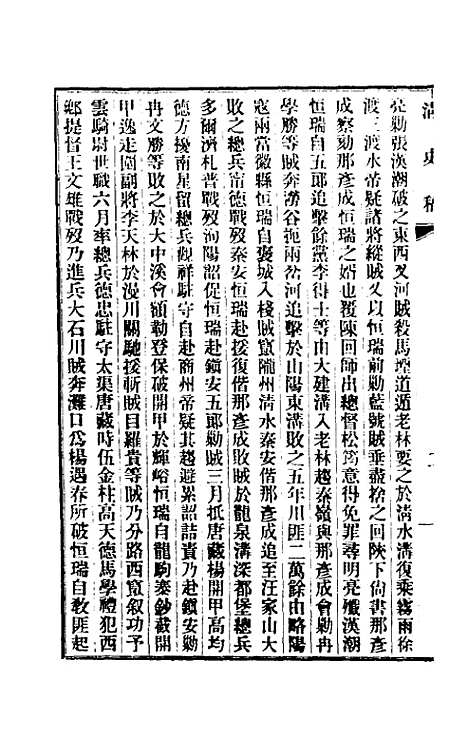 清史稿
亮勦張漢潮破之東西叉河賊殺馬堙道遁老林要之於清水溝復乘霧雨徐
渡三渡水帝疑諸將縱賊又以恒瑞前勦藍號賊垂盡捨之回陝下尙書那彥
成察劾那彥成恒瑞之婿也覆陳回師出總督松筠意得免罪尋明亮殲漢潮
恒瑞自五郎追擊餘黨李得士等由大建溝入老林趨秦嶺與那彥成會勦冉
學勝等賊奔澇谷扼兩岔河追擊於山陽東溝敗之五年川匪二萬餘由略陽
寇兩當徽縣恒瑞自褒城入棧賊竄隴州清水秦安偕那彥成追至汪家山大
敗之總兵富德戰歿秦安恒瑞赴援復偕那彥成敗賊於龍泉溝深都堡總兵
多爾濟札普戰歿洵陽詔促恒瑞赴鎭安五郎勦賊三月抵唐藏楊開甲高均
德方擾南星留總兵觀祥駐守自赴商州帝疑其趨避累詔詰責乃赴鎭安勦
冉文勝等敗之於大中溪會額勒登保破開甲於輝峪恒瑞自龍駒寨鈔截開
甲逸走圍副將李天林於漫川關馳援斬賊目羅貴等賊乃分路西竄敘功予
雲騎尉世職六月率總兵德忠駐守太集唐藏時伍金柱高天德馬學禮犯西
鄉提督王文雄戰歿乃進兵大石川賊奔灘口爲楊遇春所破恒瑞自敎匪起